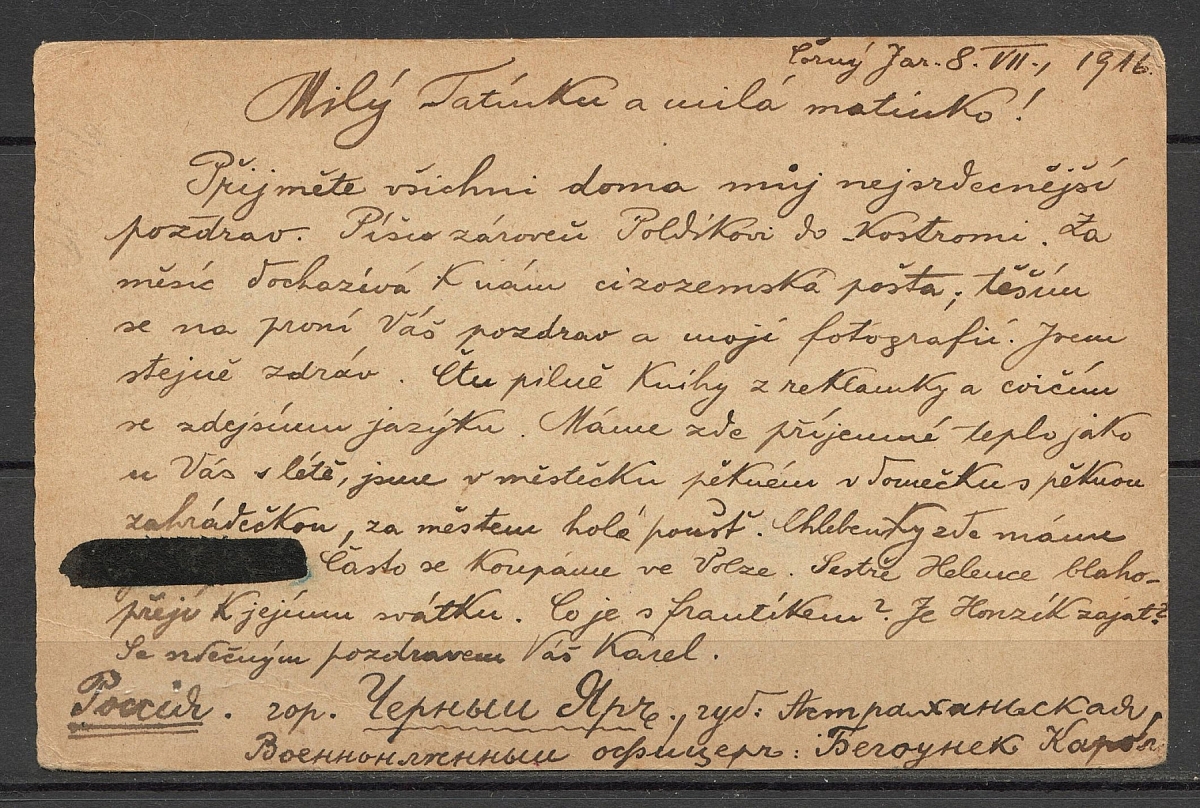 Černý Jar. 8. VII., 1916.
Milý Tatínku a milá matinko!
Přijměte všichni doma můj nejsrdecnější
pozdrav. Píšu zároveň Poldíkovi do Kostromi. Za
měsíc dochazívá k nám cizozemská pošta; těším
se na první Váš pozdrav a moji fotografii. Jsem
stejně zdráv. Čtu pilně knihy z reklamky a cvičím
se zdejším jazýku. Máme zde příjemné teplo jako
u Vás s létě, jsme v městečku pěkném v domečku s pěknou
zahrádečkou, za městem holá poušť. Chlebenky zde máme
Často se koupáme ve Volze. Sestře Helence blaho-
přeji k jejímu svátku. Co je s frantíkem? Je Honzík zajat?
Se srdečným pozdravem Váš Karel.
Россія. гор. Черный Яръ., губ: Астраханьская
Военноплѣнный офицеръ: Бегоунек Карль